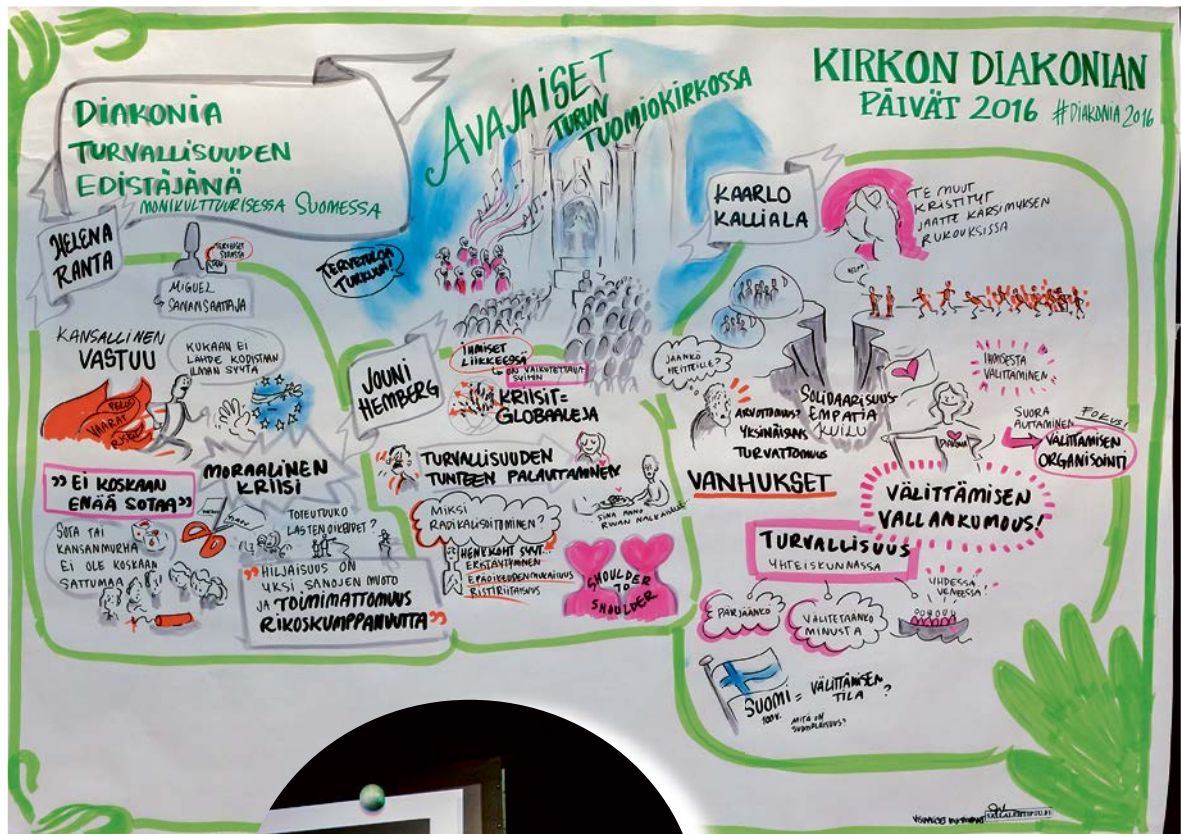 DIAKONIA
TURVALLISUUDEN
EDISTÄJÄNÄ
MONIKULTTUURISESSA SUOMESSA
AVAJAISET
TURUN
TUOMIOKIRKOSSA
KIRKON DIAKONIAN
PÄIVÄT 2016 #DIAKONIA2016
TERVETULOA
TURKUUN!
HELENA
RANTA
MIGUEL
SANANSAATTAJA
KANSALLINEN
VASTUU
KUKAAN EI
LÄHDE KODISTAAN
ILMAN SYYTÄ
PELOT
VAARAT
"EI KOSKAAN
ENÄÄ SOTAA"
MORAALINEN
KRIISI
SOTA TAI
KANSANMURHA
EI OLE KOSKAAN
SATTUMAA
TOTEUTUUKO
LASTEN OIKEUDET?
"HILJAISUUS ON
YKSI SANOJEN MUOTO
JA TOIMIMATTOMUUS
RIKOSKUMPPANUUTTA"
JOUNI
HEMBERG
IHMISET
LIIKKEESSÄ
ON VAIKUTETTAVA
SYIHIN
KRIISIT=
GLOBAALEJA
TURVALLISUUDEN
TUNTEEN PALAUTTAMINEN
MIKSI
RADIKALISOITUMINEN?
HENKKOHT SYYT...
ERISTÄYTYMINEN
EPÄOIKEUDENMUKAISUUS
RISTIRIITAISUUS
SINÄ ANNO
RUUAN NÄLKÄISILLE
SHOULDER
TO
SHOULDER
KAARLO
KALLIALA
TE MUUT
KRISTITYT
JAATTE KÄRSIMYKSEN
RUKOUKSISSA
JÄÄNKÖ
HEITTEILLE?
ARVOTTOMUUS
YKSINÄISYYS
TURVATTOMUUS
VANHUKSET
SOLIDAARISUUS
EMPATIA
KUILU
IHMISESTÄ
VÄLITTÄMINEN
SUORA
AUTTAMINEN
FOKUS!
VÄLITTÄMISEN
ORGANISOINTI
DIAKONIA
VÄLITTÄMISEN
VALLANKUMOUS!
TURVALLISUUS
YHTEISKUNNASSA
PÄRJÄÄNKÖ
VÄLITETÄÄNKÖ
MINUSTA
YHDESSÄ
VENEESSÄ!
SUOMI = VÄLITTÄMISEN
TILA?
100V.
MITÄ ON
SUOMALAISUUS?